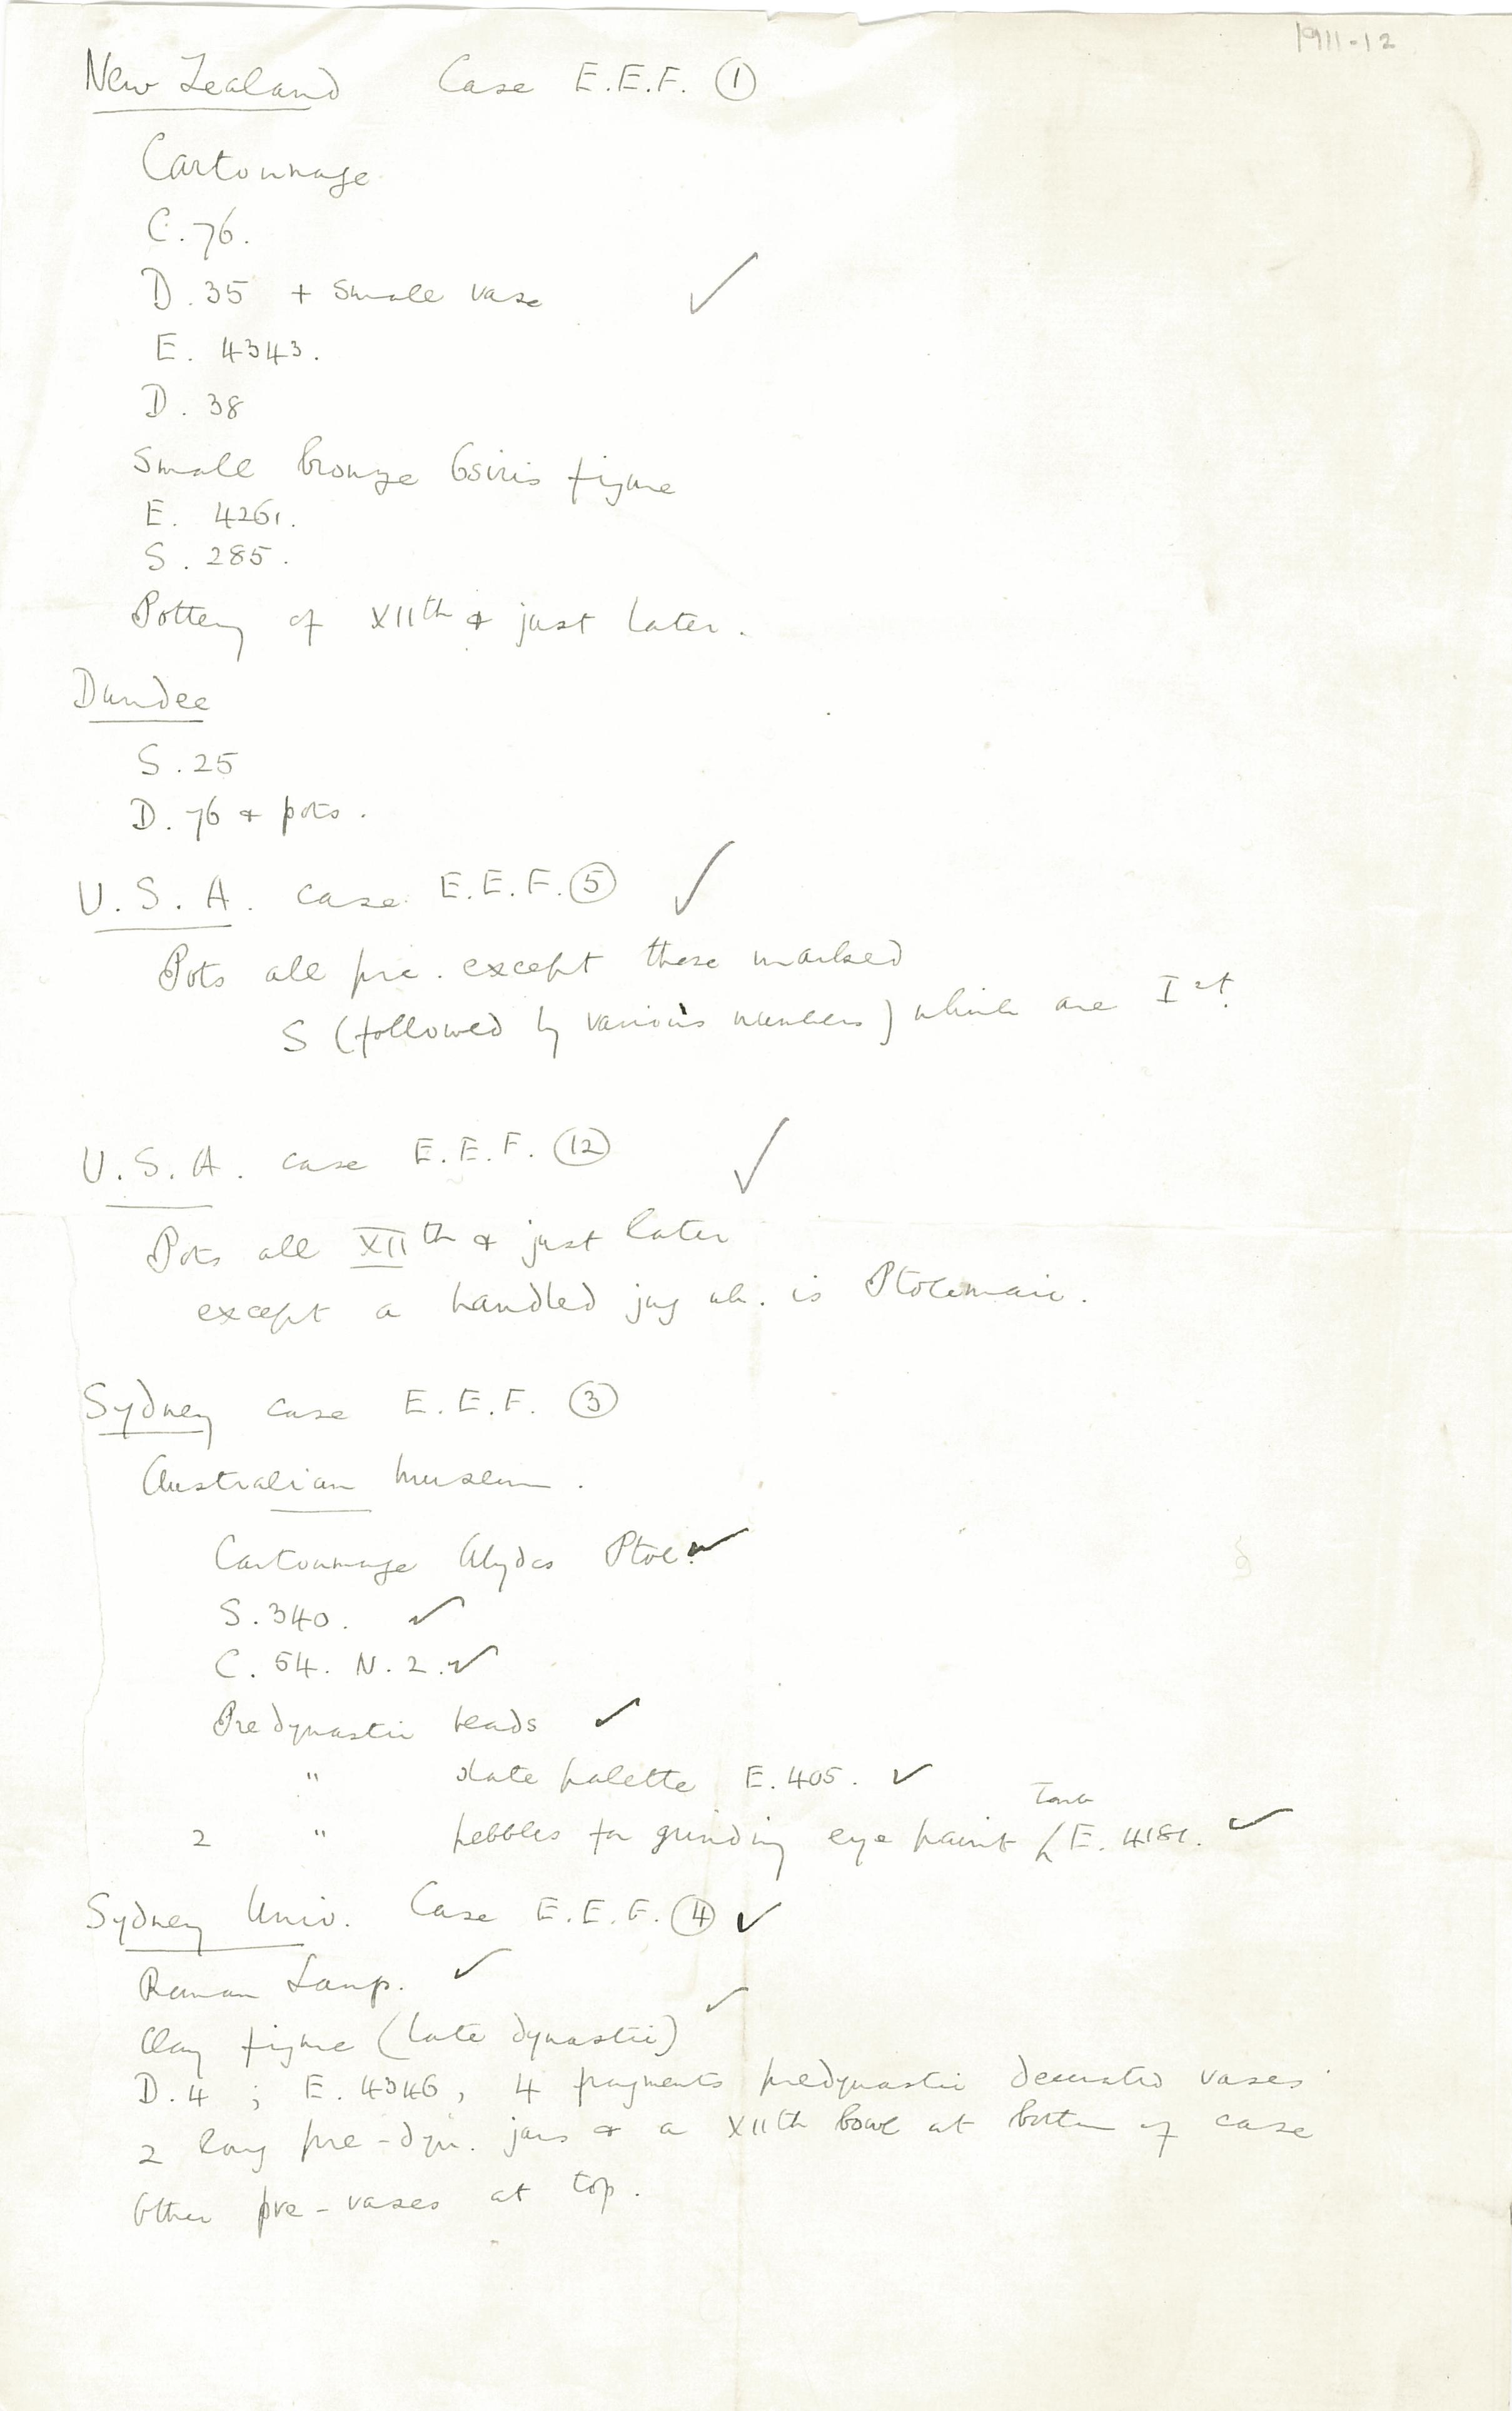 1911-12
New Zealand Case E.E.F. ①
Cartonnage
C. 76.
D. 35 + small vase ✓
E. 4343.
D. 38
Small bronze Osiris figure
E. 4261.
S. 285.
Pottery of XIIth & just later.
Dundee
S. 25
D. 76 & pots.
U.S.A. case E.E.F. ⑤ ✓
Pots all pre. except those marked
S (followed by various numbers) which are Ist.
U.S.A. case E.E.F. ⑫ ✓
Pots all XIIth & just later
except a handled jug wh. is Ptolemaic.
Sydney case E.E.F. ③
Australian Museum.
Cartonnage Abydos Ptol. ✓
S. 340. ✓
C. 54. N. 2. ✓
Predynastic beads ✓
" slate palette E. 405. ✓
Tomb
2 " pebbles for grinding eye paint E. 4181. ✓
Sydney Univ. Case E.E.F. ④ ✓
Roman Lamp. ✓
Clay figure (late dynastic) ✓
D. 4 ; E. 4346, 4 fragments predynastic decorated vases
2 long pre-dyn. jars & a XIIth bowl at bottom of case
Other pre-vases at top.